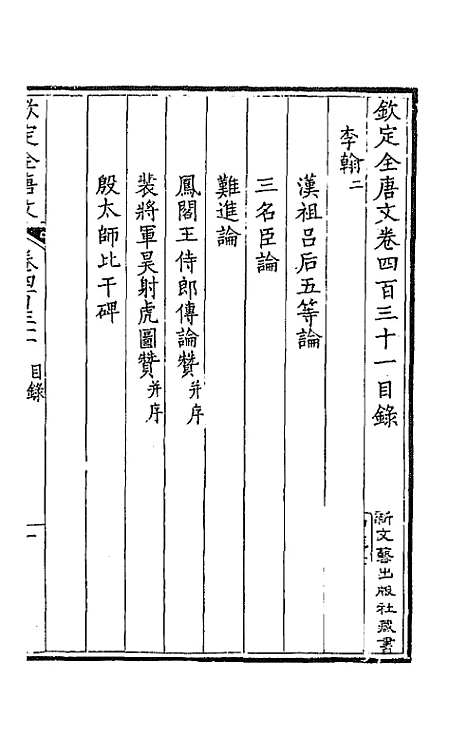 欽定全唐文卷四百三十一目錄
李翰二
漢祖呂后五等論
三名臣論
難進論
鳳閣王侍郎傳論贊并序
裴將軍旻射虎圖贊并序
殷太師比干碑
欽定全唐文 卷四百三十一 目錄 一
新文藝出版社藏書